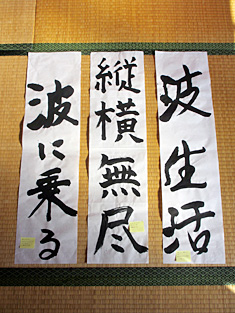 波生活
縦横無尽
波に乗る